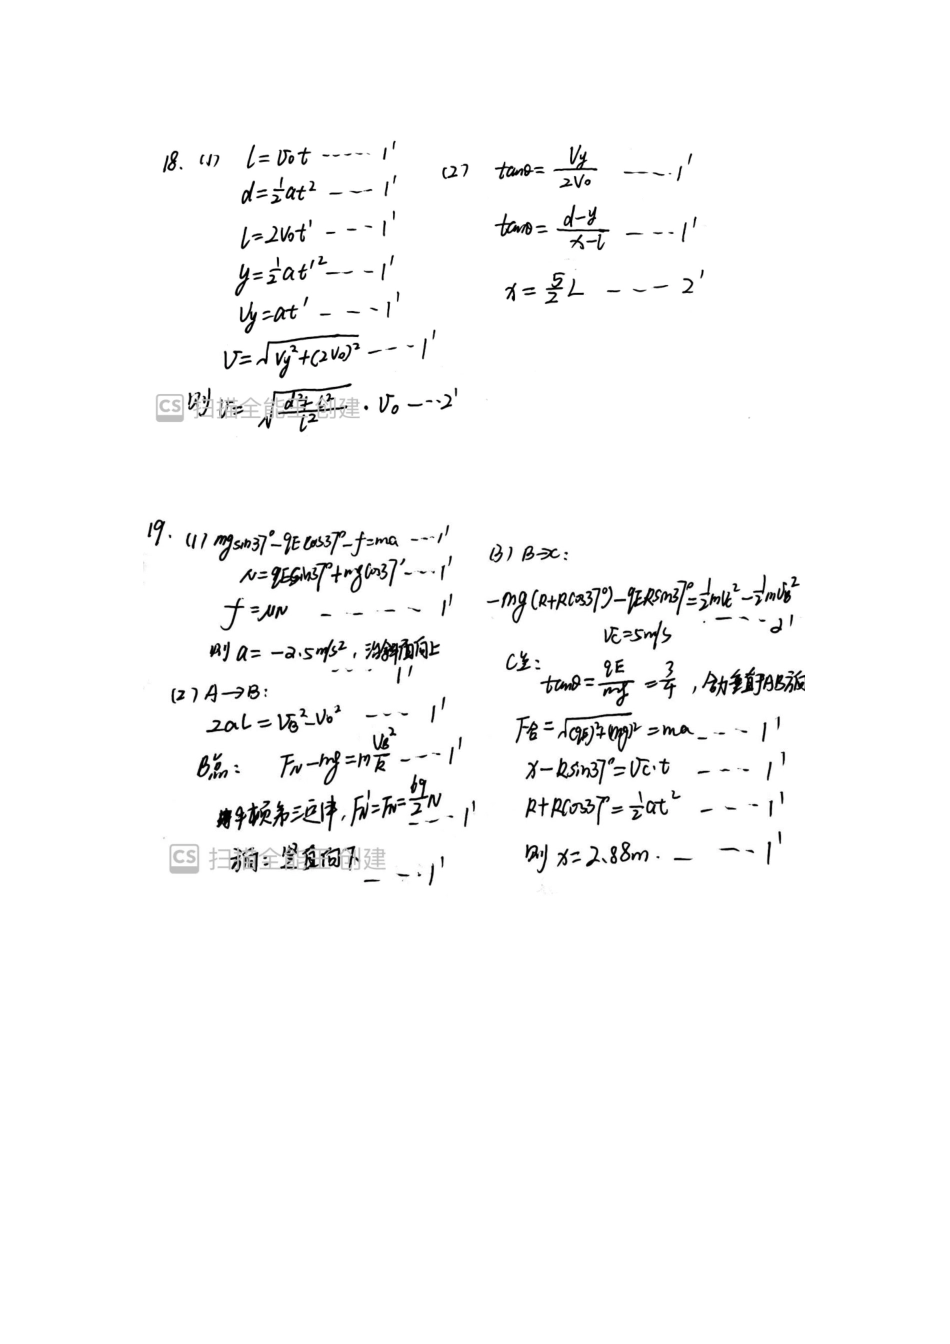 18. (1) l=v₀t ----- 1'
d=½at² ---- 1'
l=2v₀t' ---- 1'
y=½at'² ---- 1'
Vy=at' ---- 1'
V=√(Vy²+(2V₀)²) ---- 1'
则 v=√((d²+l²)/l²)·v₀ ---2'
CS 扫描全能王 创建
(2) tanθ=Vy/2V₀ ---- 1'
tanθ=(d-y)/(x-l) ---- 1'
x=5/2 L ---- 2'
19. (1) mgsin37°-qEcos37°-f=ma ---- 1'
N=qEsin37°+mgcos37° ---- 1'
f=μN ---- 1'
则 a=-2.5m/s², 沿斜面向上
---- 1'
(2) A→B:
2aL=VB²-V₀² ---- 1'
B点: FN-mg=m VB²/R ---- 1'
牛顿第三定律, FN'=FN=69/2 N ---- 1'
方向: 竖直向下
---- 1'
CS 扫描全能王 创建
(3) B→C:
-mg(R+Rcos37°)-qERsin37°=½mVc²-½mVB²
Vc=5m/s ---- 2'
C点:
tanθ=qE/mg=3/4, 合力垂直于AB
F合=√((qE)²+(mg)²)=ma ---- 1'
x-Rsin37°=Vc·t ---- 1'
R+Rcos37°=½at² ---- 1'
则 x=2.88m. ---- 1'